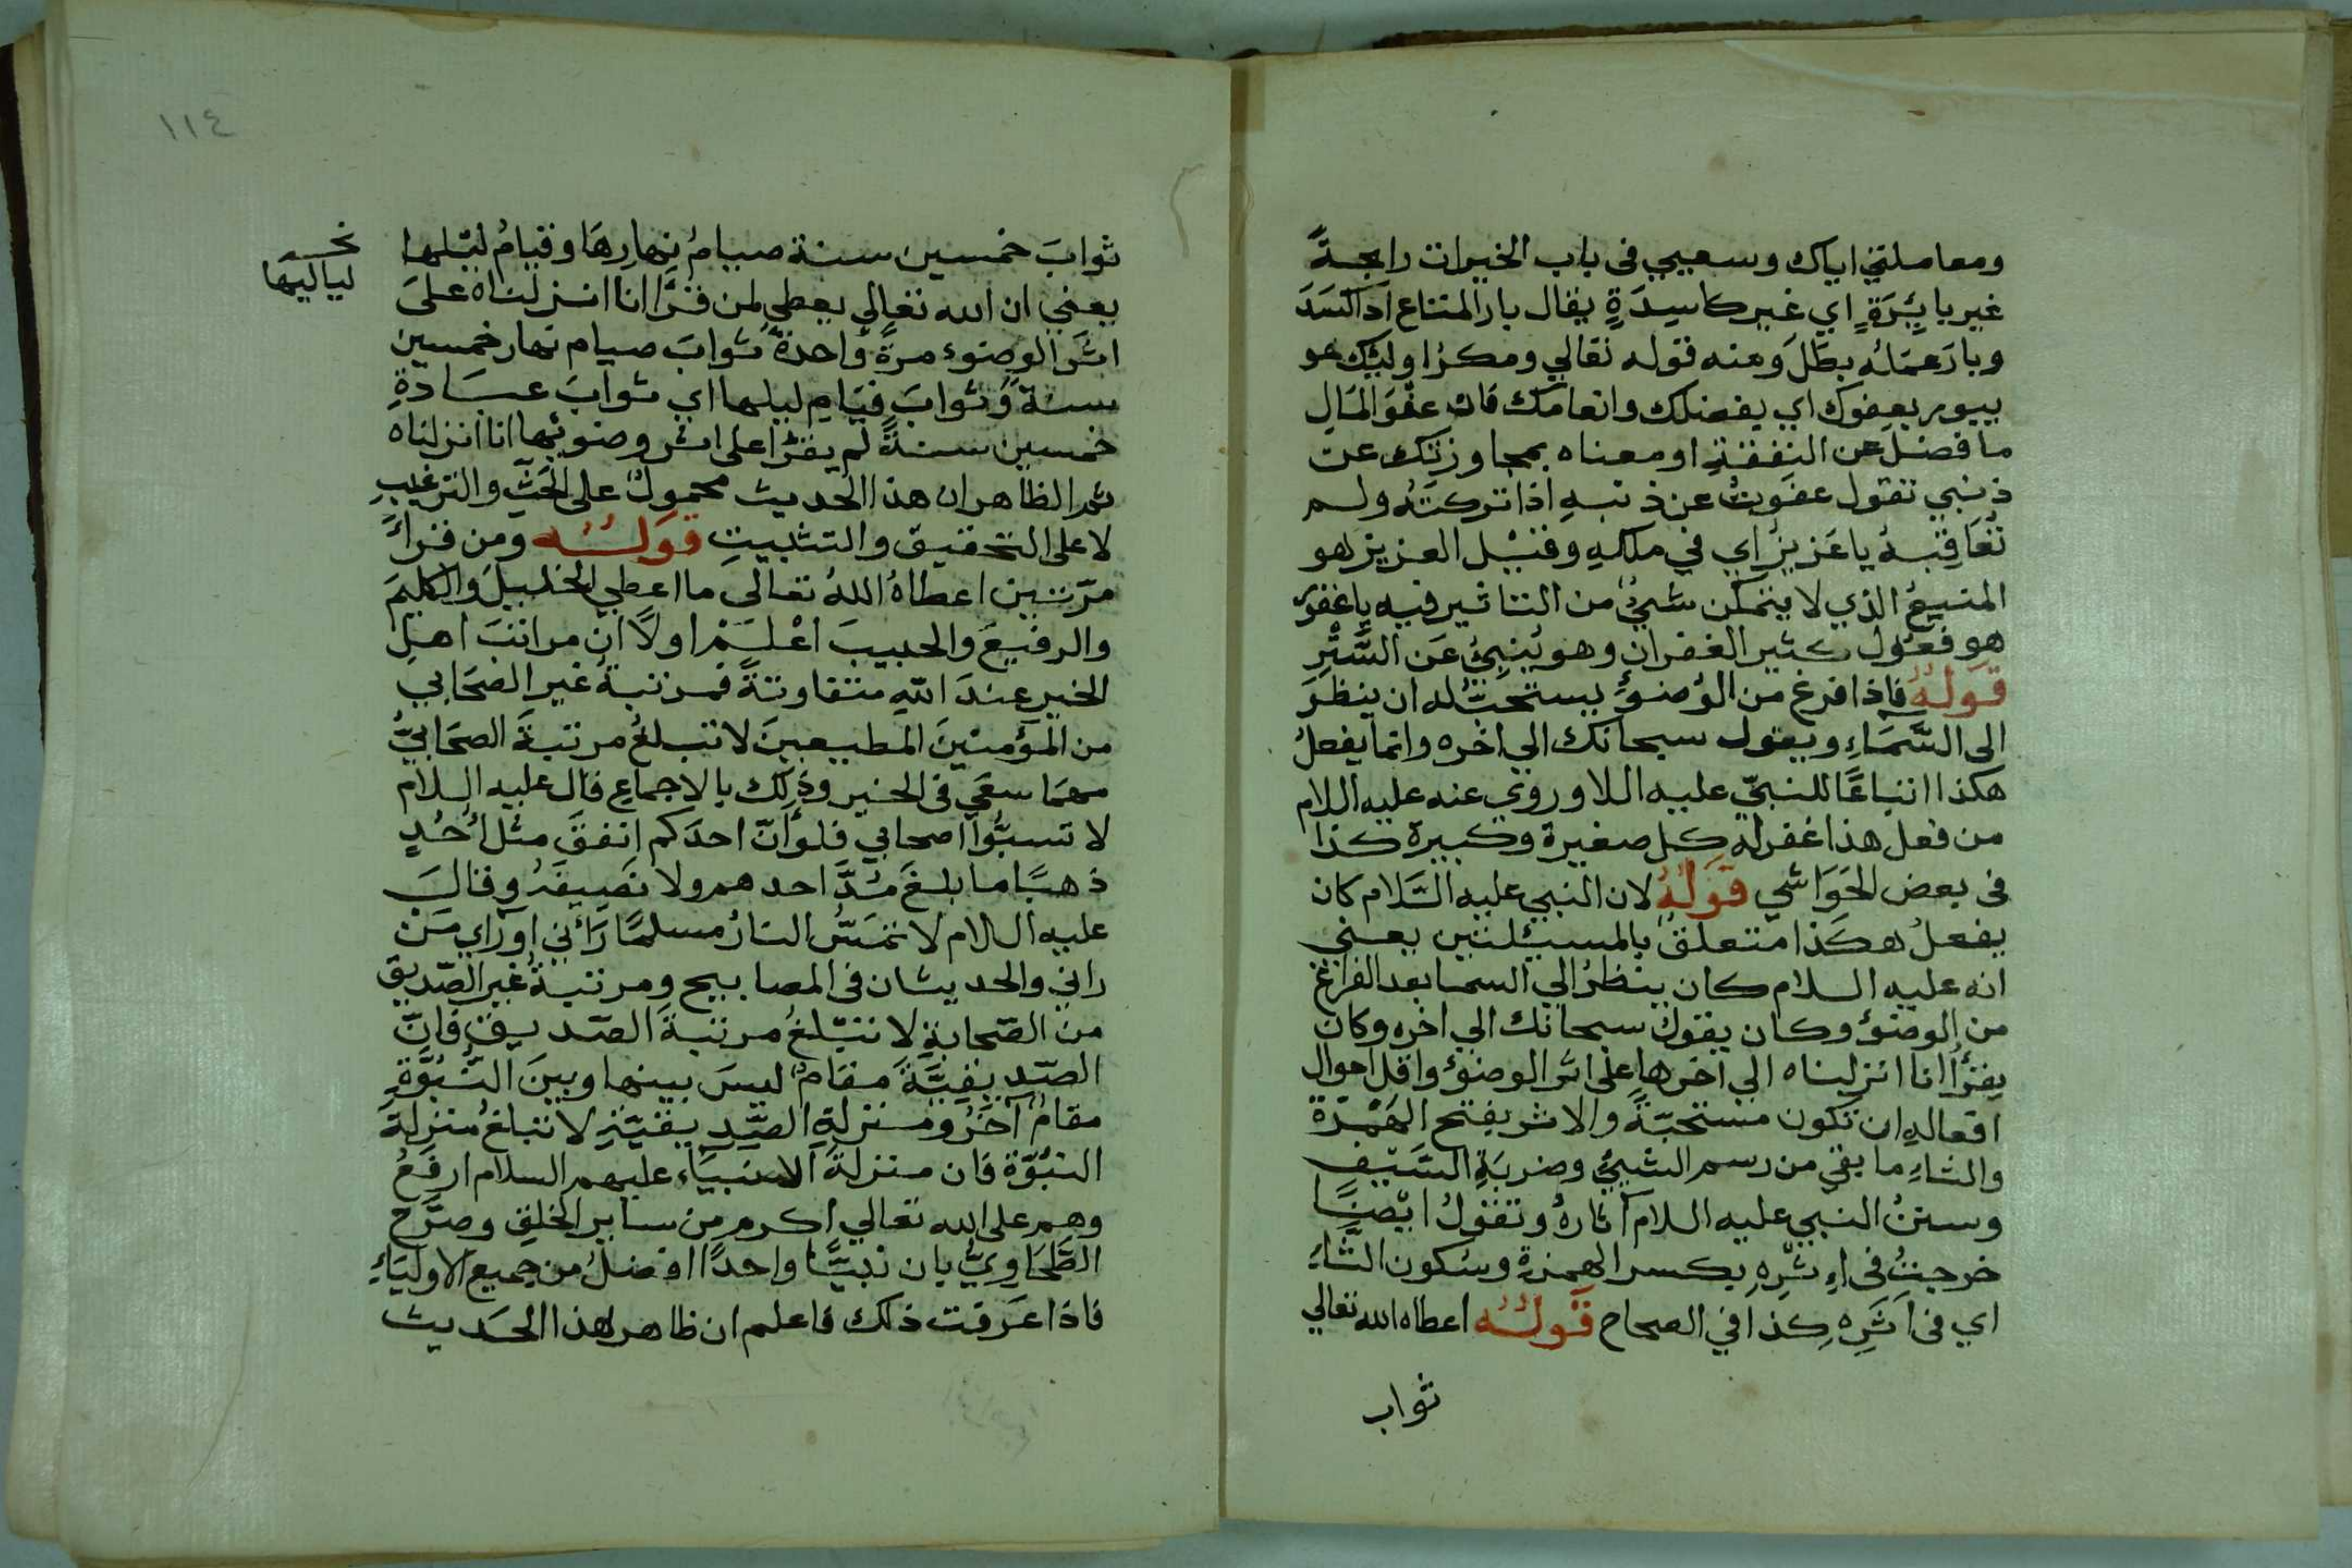 ومعاملتي اياك وسعيي في باب الخيرات رابحةً
غير بائِرَةٍ اي غير كاسِدَةٍ يقال بار المتاع اذا كَسَدَ
وبارَ عمَلُه بطَلَ ومنه قوله تعالي ومكرُ اوليك هو
يبور بعفوك اي بفضلك وانعامك فان عفْوَ المَالِ
ما فضل عن النفقةِ او معناه بمجاوزتك عن
ذنبي تقول عفوتُ عن ذنبهِ اذا تركتَهُ ولم
تُعَاقِبْهُ يا عَزيزُ اي في ملكهِ وقيْل العزيز هو
المنيعُ الذي لا يتمكن شيءٌ من التاثير فيه يا غفورُ
هو فعُول كثير الغفران وهو يُنبِئُ عَن السَّتْرِ
قَولهُ فاذا فرغ من الوُضوُءِ يستحبّ له ان ينظرَ
الى السَّمَاءِ ويقول سبحانك الي اخره وانما يفعلُ
هكذا اتباعًا للنبيّ عليه اللا وروي عنه عليه اللام
من فعل هذا غفر له كل صغيرة وكبيرة كذا
في بعض الحَوَاشي قَولُهُ لان النبي عليه السَّلام كان
يفعلُ هكذا متعلقٌ بالمسئلتين يعني
انه عليه السلام كان ينظرُ الي السما بعد الفراغ
من الوضوُءِ وكان يقول سبحانك الي اخره وكان
يقرَأُ انا انزلناه الي اخرها على اثر الوضوُء واقل احوال
افعالهِ ان تكون مستحبّةً والاثر بفتح الهَمْزة
والثاءِ ما بقيَ من رسم الشيءُ وضربَةِ السَّيْفِ
وسننُ النبي عليه اللام آثارهُ وتقولُ ايْضًا
خرجتُ في اِثْرِهِ بكسر الهمزة وسُكون الثَّاءِ
اي في اَثَرِهِ كذا في الصحاح قَولُهُ اعطاه الله تعالي
ثواب
١١٤
ثوابَ خمسين سنة صيامُ نهارِهَا وقيامُ ليْلها
نخـ
لياليها
يعني ان الله تعالي يعطي لمن قرَأَ انا انزلناه علىَ
اثَرَ الوضوء مرةً واحدةً ثوابَ صيام نهار خمسين
سنةً وثوابَ قيَامِ ليلها اي ثوابَ عبَادةِ
خمسين سنةً لم يقرَأ على اثر وضوئها انا انزلناه
ثم الظاهر ان هذا الحديث محمولٌ على الحَثِّ والترغيبِ
لا على التحقيق والتثبيتِ قَولُهُ ومن قرأَ
مرّتين اعطاهُ اللهُ تعالى ما اعطي الخليلَ والكليمَ
والرفيعَ والحبيبَ اعْلَمْ اولًا ان مراتبَ اهلِ
الخير عِندَ اللّه متفاوتةً فمرتبةُ غير الصَّحَابي
من المؤمنينَ المطيعينَ لا تبلغُ مرتبةَ الصحَابيُّ
مهمَا سعَي في الخير وذلك بالاجماعِ قال عليه السلام
لا تسبُّوا اصحابي فلو انّ احدَكم انفقَ مثل اُحُدٍ
ذهبًا ما بلغَ مُدَّ احدهم ولا نصيفَهُ وقالَ
عليه اللام لا تمَسُّ النارُ مسلمًا رَانِي او راي مَن
راني والحديثان في المصابيح ومرتبةُ غير الصّديق
من الصّحابةِ لا تبْلغُ مرتبةَ الصّديقِ فانّ
الصّديقِيَّةَ مقامٌ ليسَ بينها وبينَ النُّبُوَّةِ
مقامٌ آخَرُ ومنزلةِ الصِّديقيّةِ لا تبلغُ منزلةَ
النبُوّة فان منزلةَ الانبيَاء عليهم السلام ارفَعُ
وهم على الله تعالي اكرم من ساير الخلق وصرَّح
الطَّحَاوِيُّ بان نبيًّا واحدًا افضلُ من جميع الاوليَاءِ
فاذا عَرَفت ذلك فاعلم ان ظاهر هذا الحَديث